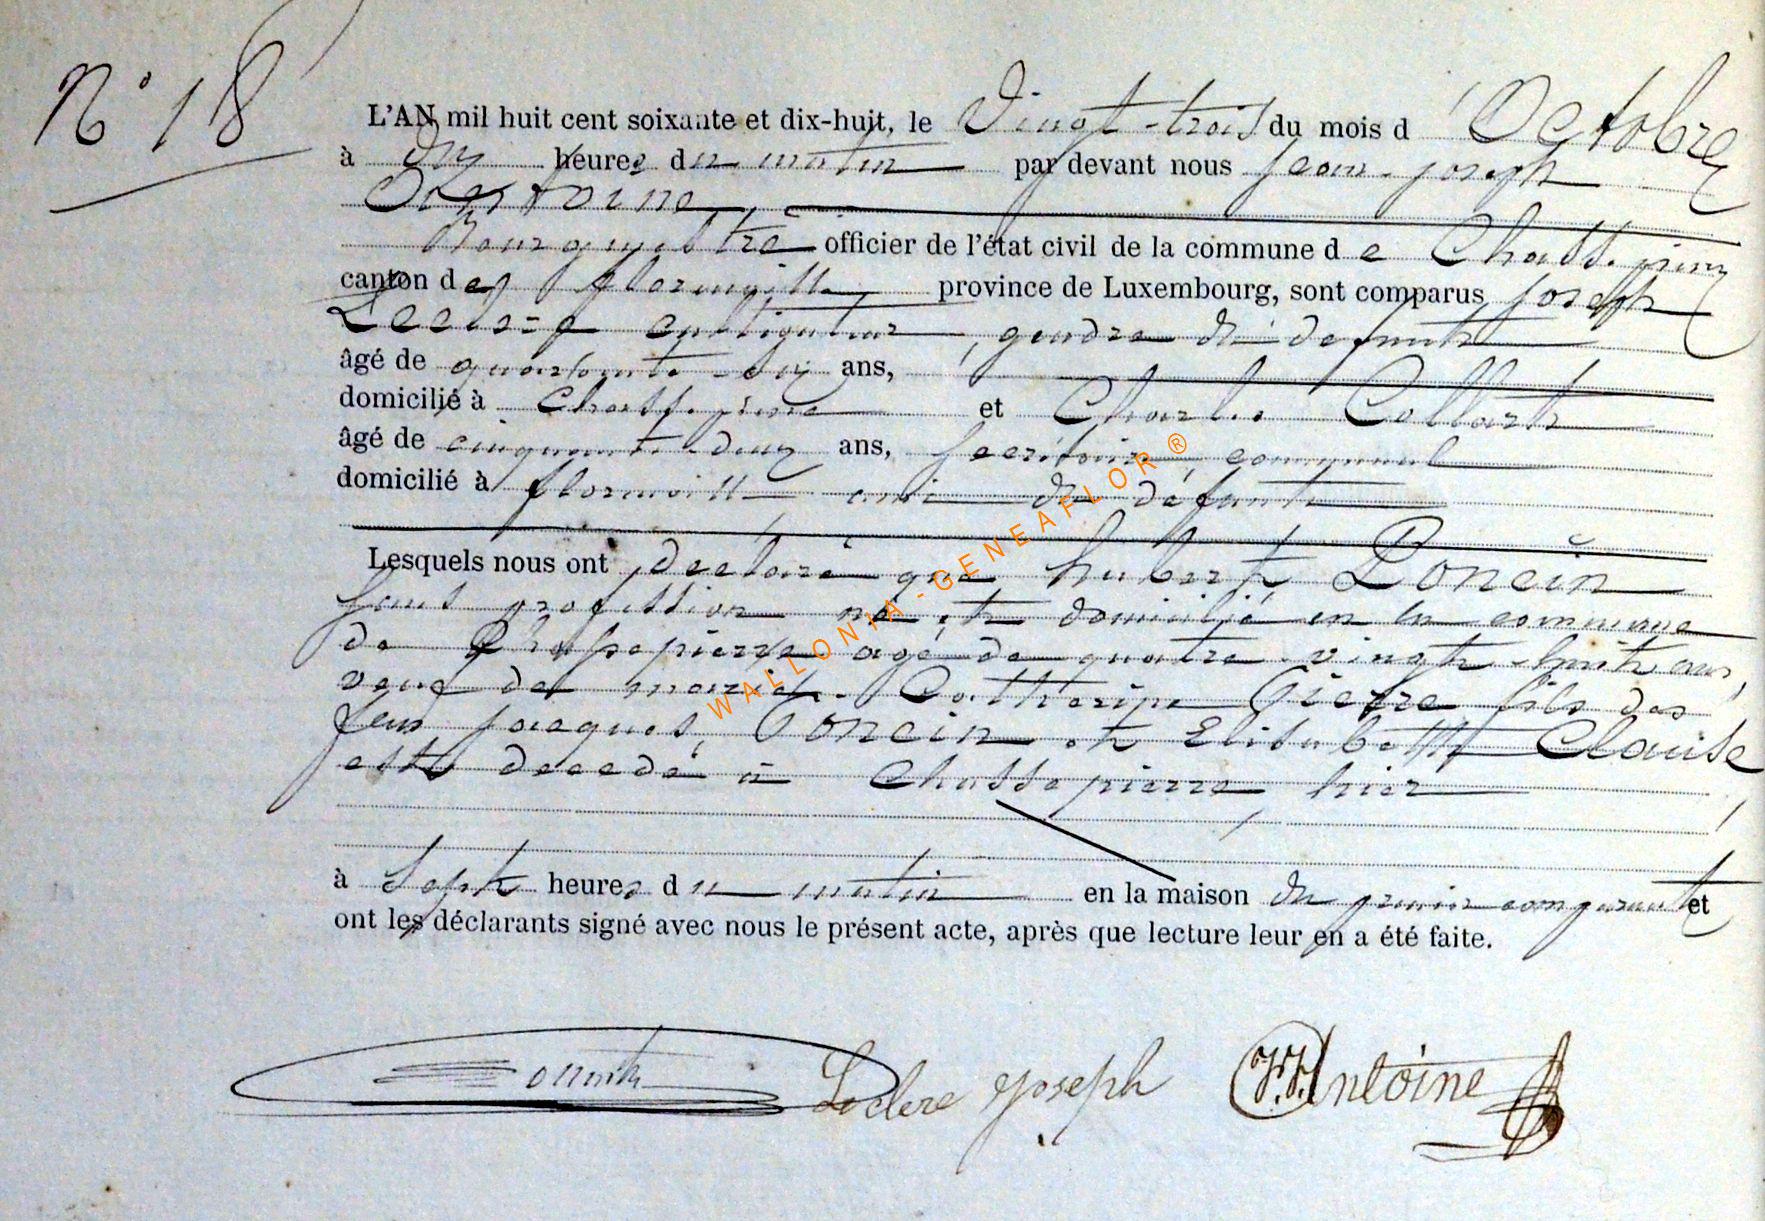 N° 18
L'AN mil huit cent soixante et dix-huit, le Vingt-trois du mois d'Octobre
à dix heures du matin par devant nous Jean-joseph
Antoine
Bourgmestre officier de l'état civil de la commune de Chassepierre
canton de florenville province de Luxembourg, sont comparus joseph
Leclere cultivateur, gendre du defunt
âgé de quarante-six ans,
domicilié à Chassepierre et Charles Collart
âgé de cinquante deux ans, secrétaire communal
domicilié à florenville ami du défunt
Lesquels nous ont declaré que hubert Poncin
sans profession né et domicilié en la commune
de Chassepierre agé de quatre-vingt-huit ans,
veuf de marie-Catherine Pierre fils des
feus jacques Poncin et Elisabeth Clause
est decedé à Chassepierre, hier
à Sept heures du matin en la maison du premier comparant et
ont les déclarants signé avec nous le présent acte, après que lecture leur en a été faite.
Leclere Joseph J.J. Antoine
WALLONIA-GENEAFLOR ®